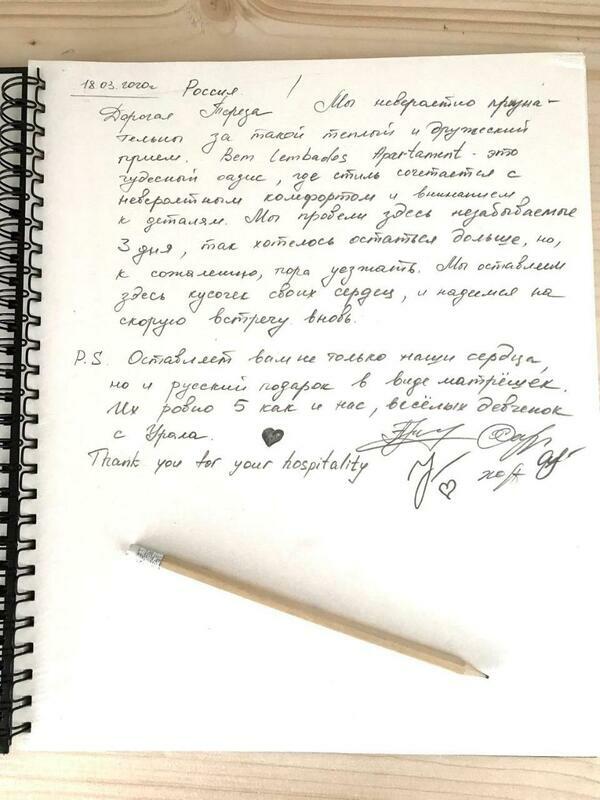 18.03.2020г Россия.
Дорогая Тереза Мы невероятно призна-
тельны за такой теплый и дружеский
прием. Bem Lembados Apartament - это
чудесный оазис, где стиль сочетается с
невероятным комфортом и вниманием
к деталям. Мы провели здесь незабываемые
3 дня, так хотелось остаться дольше, но,
к сожалению, пора уезжать. Мы оставляем
здесь кусочек своих сердец, и надеемся на
скорую встречу вновь.
P.S. Оставляет вам не только наши сердца,
но и русский подарок в виде матрёшек.
Их ровно 5 как и нас, весёлых девченок
с Урала.
Thank you for your hospitality